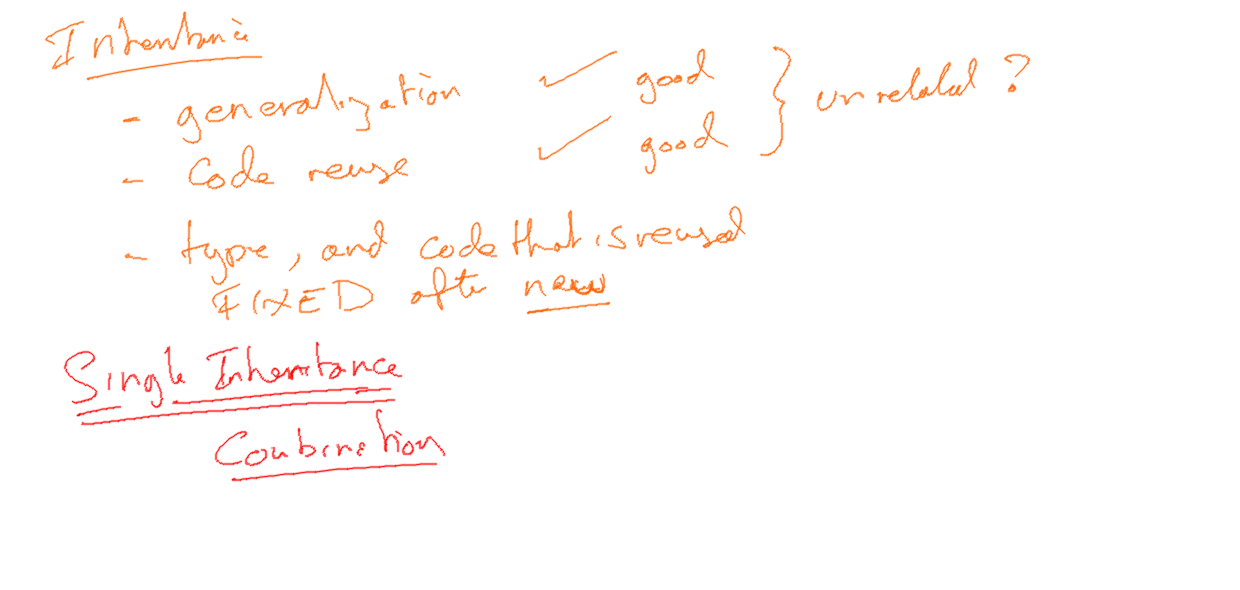 Inheritance
- generalization ✓ good } unrelated ?
- Code reuse ✓ good
- type, and code that is reused
FIXED after new
Single Inheritance
Combination